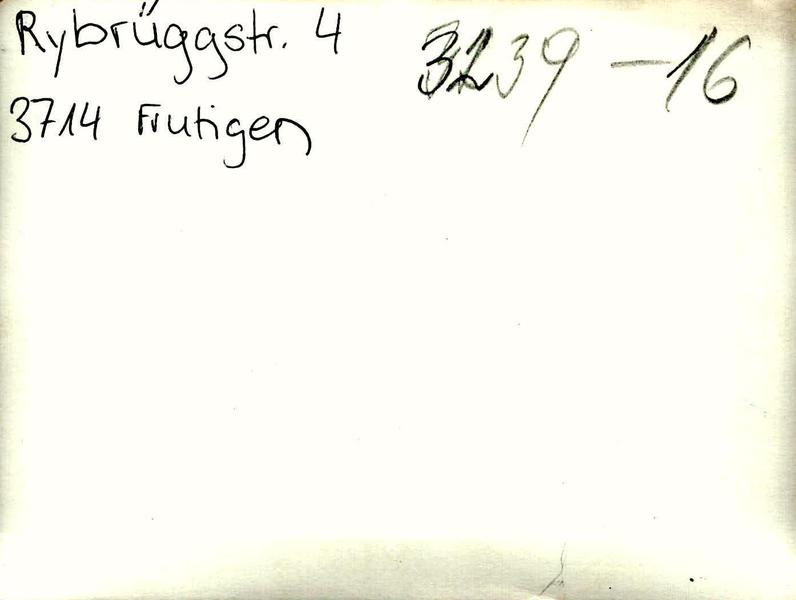 Rybrüggstr. 4
3714 Frutigen
3239 - 16